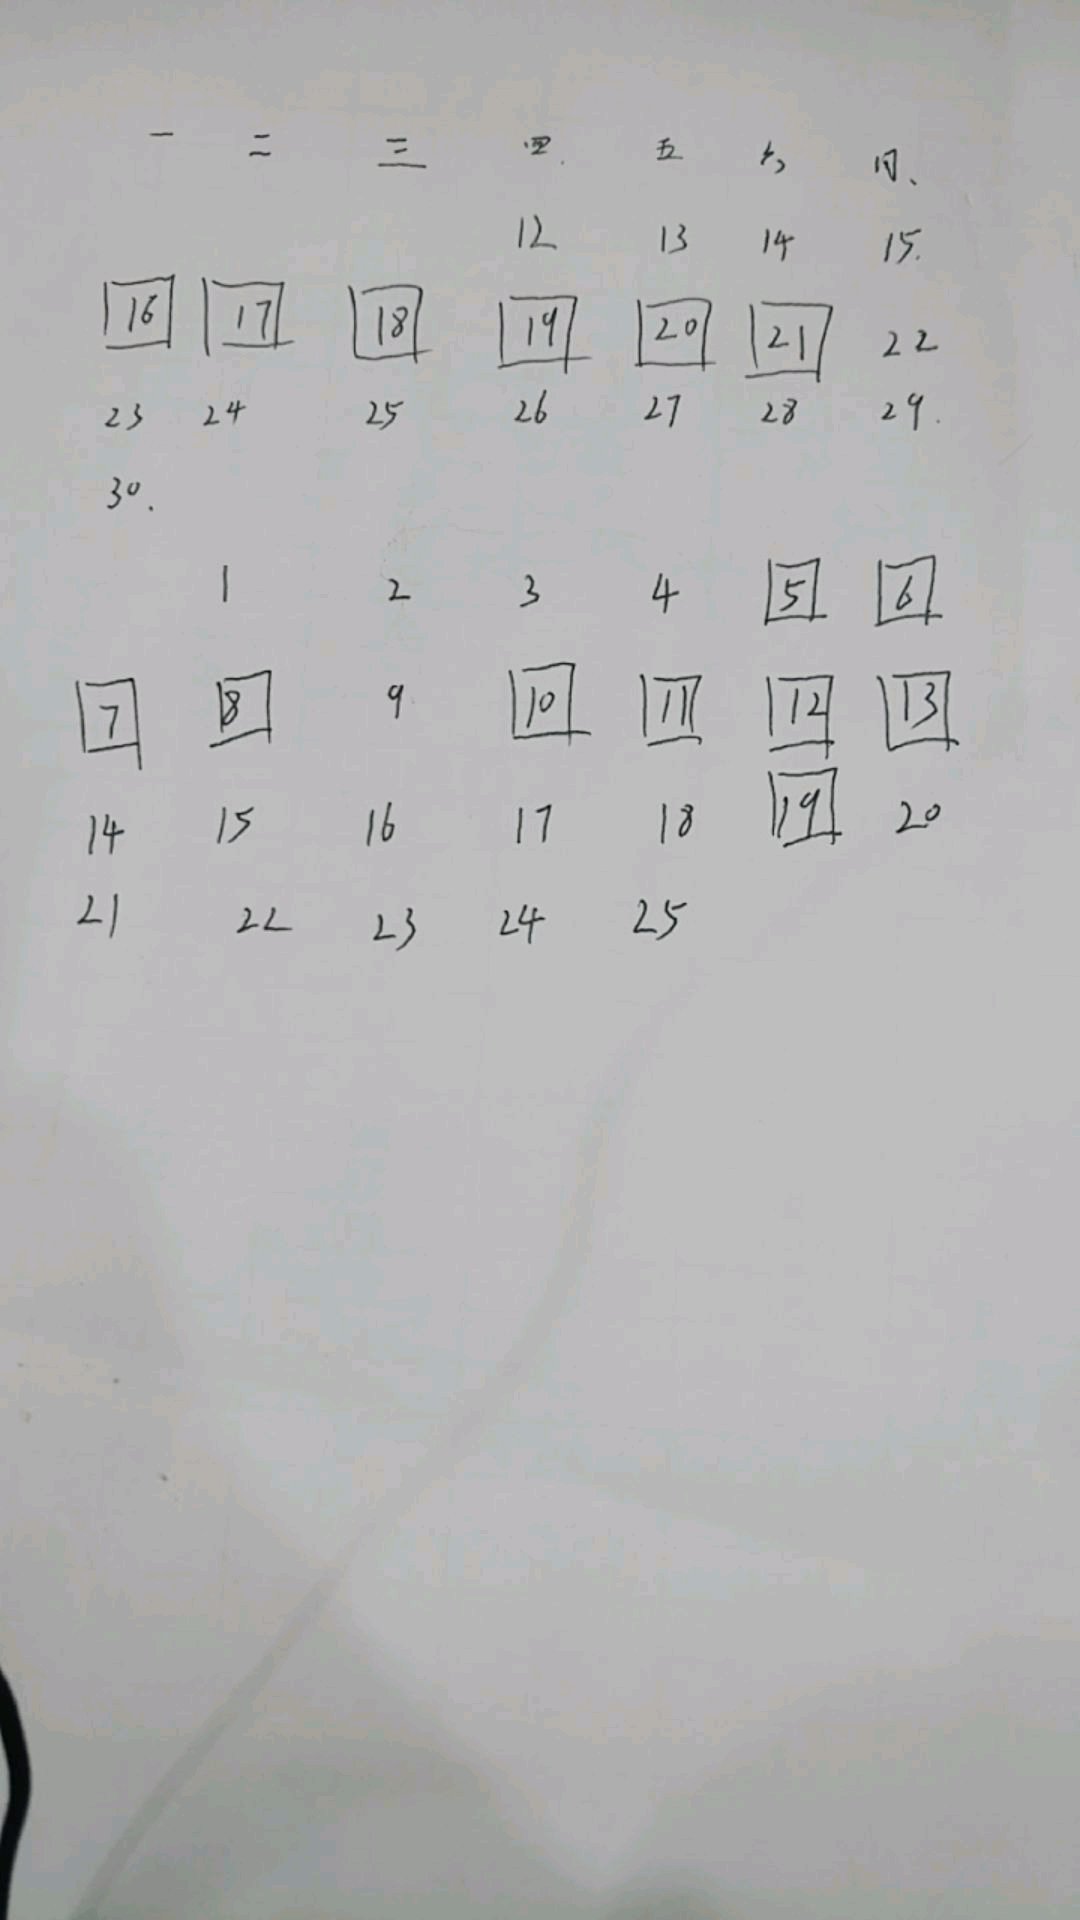 一 二 三 四. 五 六 日、
12 13 14 15.
16 17 18 19 20 21 22
23 24 25 26 27 28 29.
30.
1 2 3 4 5 6
7 8 9 10 11 12 13
14 15 16 17 18 19 20
21 22 23 24 25